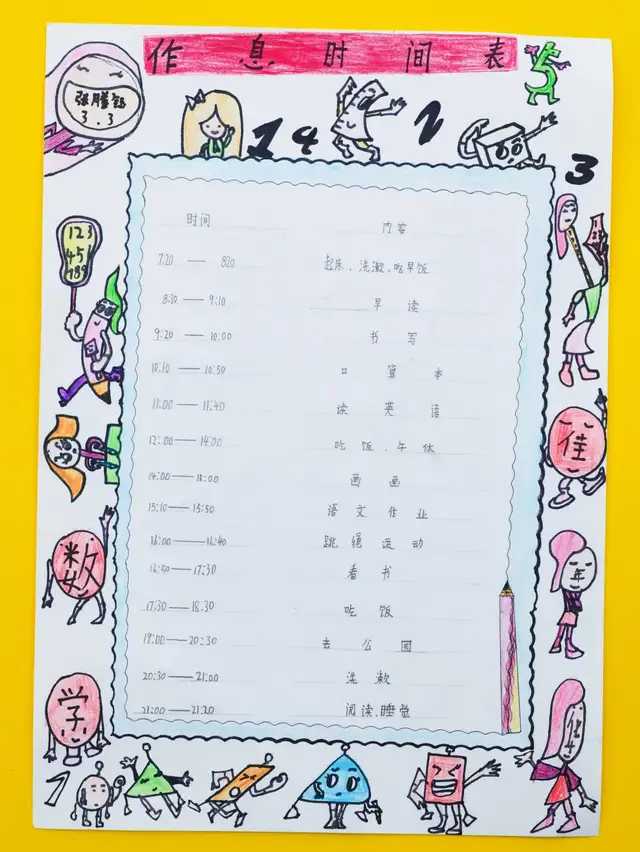 作息时间表
3.3
1 4 2
5
3
时间 内容
7:20 — 8:20 起床、洗漱、吃早饭
8:30 — 9:10 早读
9:20 — 10:00 书写
10:10 — 10:50 口算本
11:00 — 11:40 读英语
12:00 — 14:00 吃饭、午休
14:00 — 15:00 画画
15:10 — 15:50 语文作业
16:00 — 16:40 跳绳运动
16:50 — 17:30 看书
17:30 — 18:30 吃饭
19:00 — 20:30 去公园
20:30 — 21:00 洗漱
21:00 — 21:20 阅读、睡觉
123
456
789
佳
数
年
学
华
1